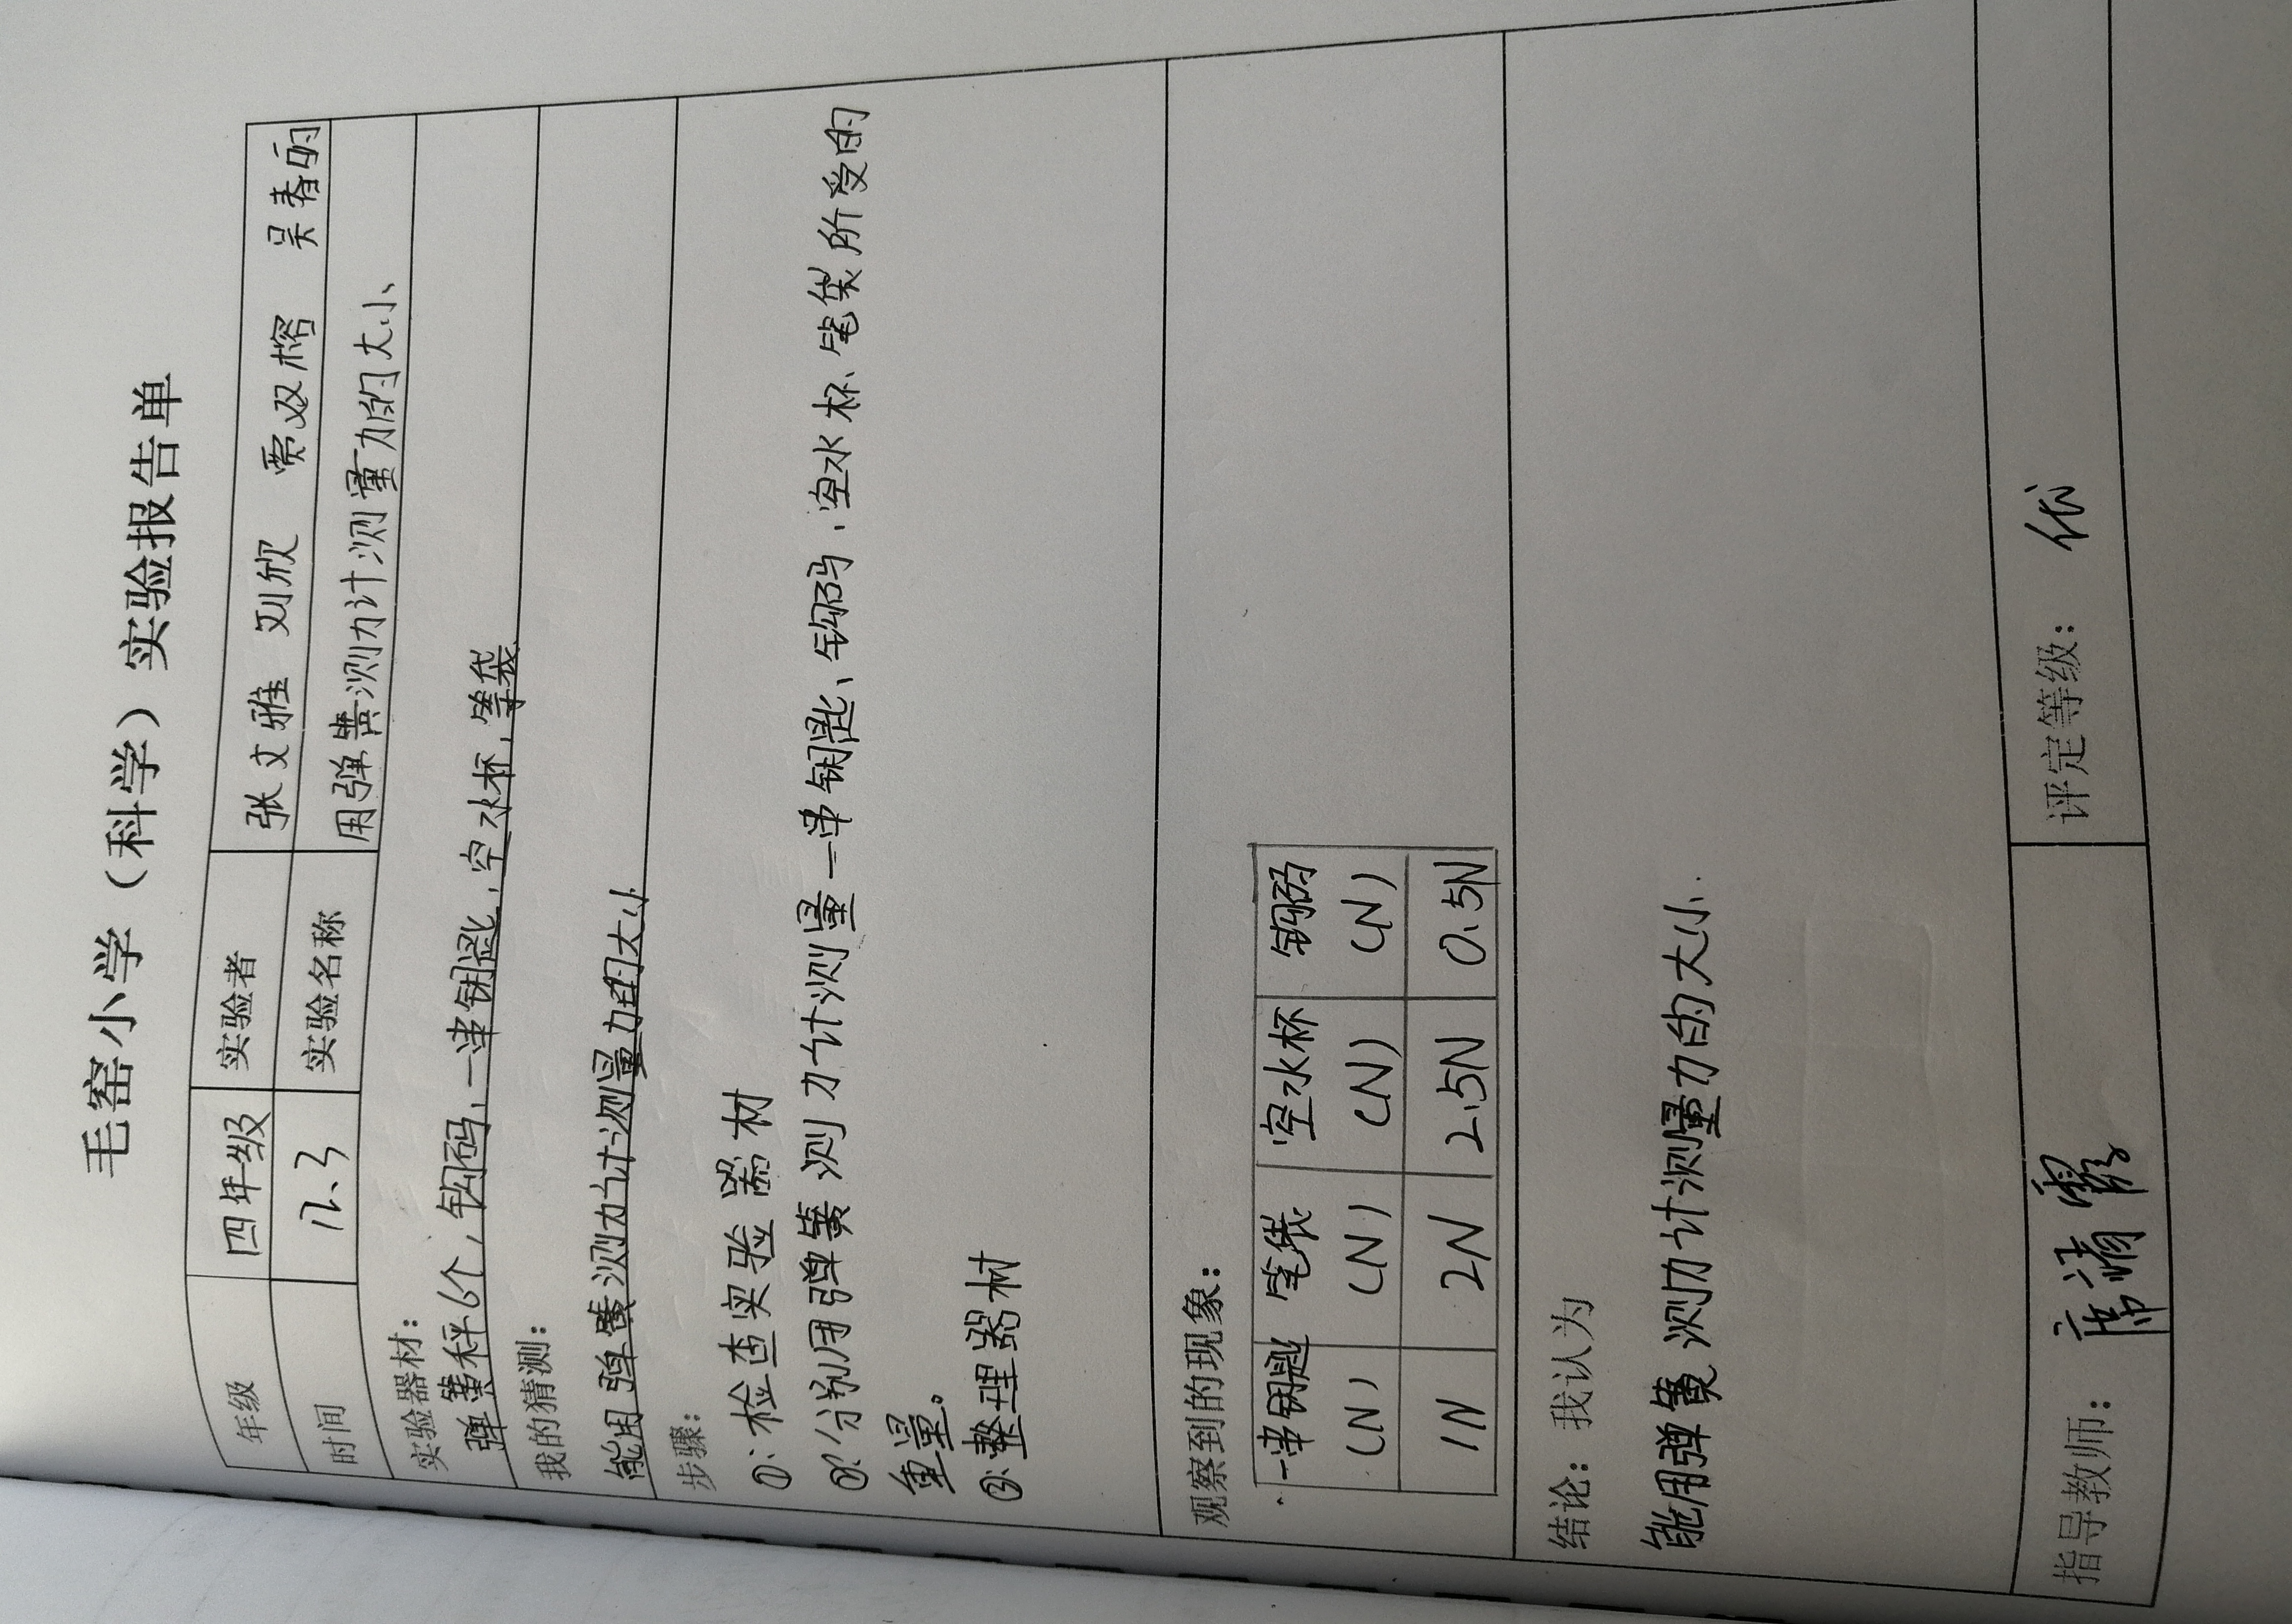 毛窑小学（科学）实验报告单
年级 四年级 实验者 张文雅 刘欣 贾双榕 吴春丽
时间 12.3 实验名称 用弹簧测力计测量力的大小
实验器材：
弹簧秤6个，钩码，一串钥匙，空水杯，笔袋
我的猜测：
能用弹簧测力计测量力的大小
步骤：
①：检查实验器材
②：分别用弹簧测力计测量一串钥匙、钩码、空水杯、笔袋所受的
重量。
③：整理器材
观察到的现象：
一串钥匙 笔袋 空水杯 钩码
(N) (N) (N) (N)
1N 2N 2.5N 0.5N
结论：我认为
能用弹簧测力计测量力的大小.
指导教师： 评定等级：优